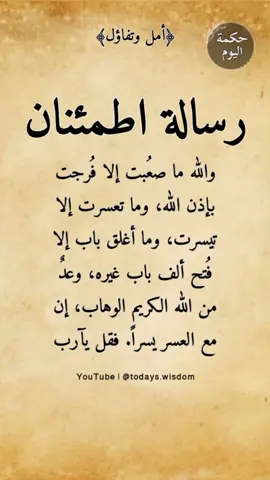 ﴿أمل وتفاؤل﴾
حكمة
اليوم
رسالة اطمئنان
والله ما صعُبت إلا فُرجت
بإذن الله، وما تعسرت إلا
تيسرت، وما أغلق باب إلا
فُتح ألف باب غيره، وعدٌ
من الله الكريم الوهاب، إن
مع العسر يسراً. فقل يآرب
YouTube | @todays.wisdom